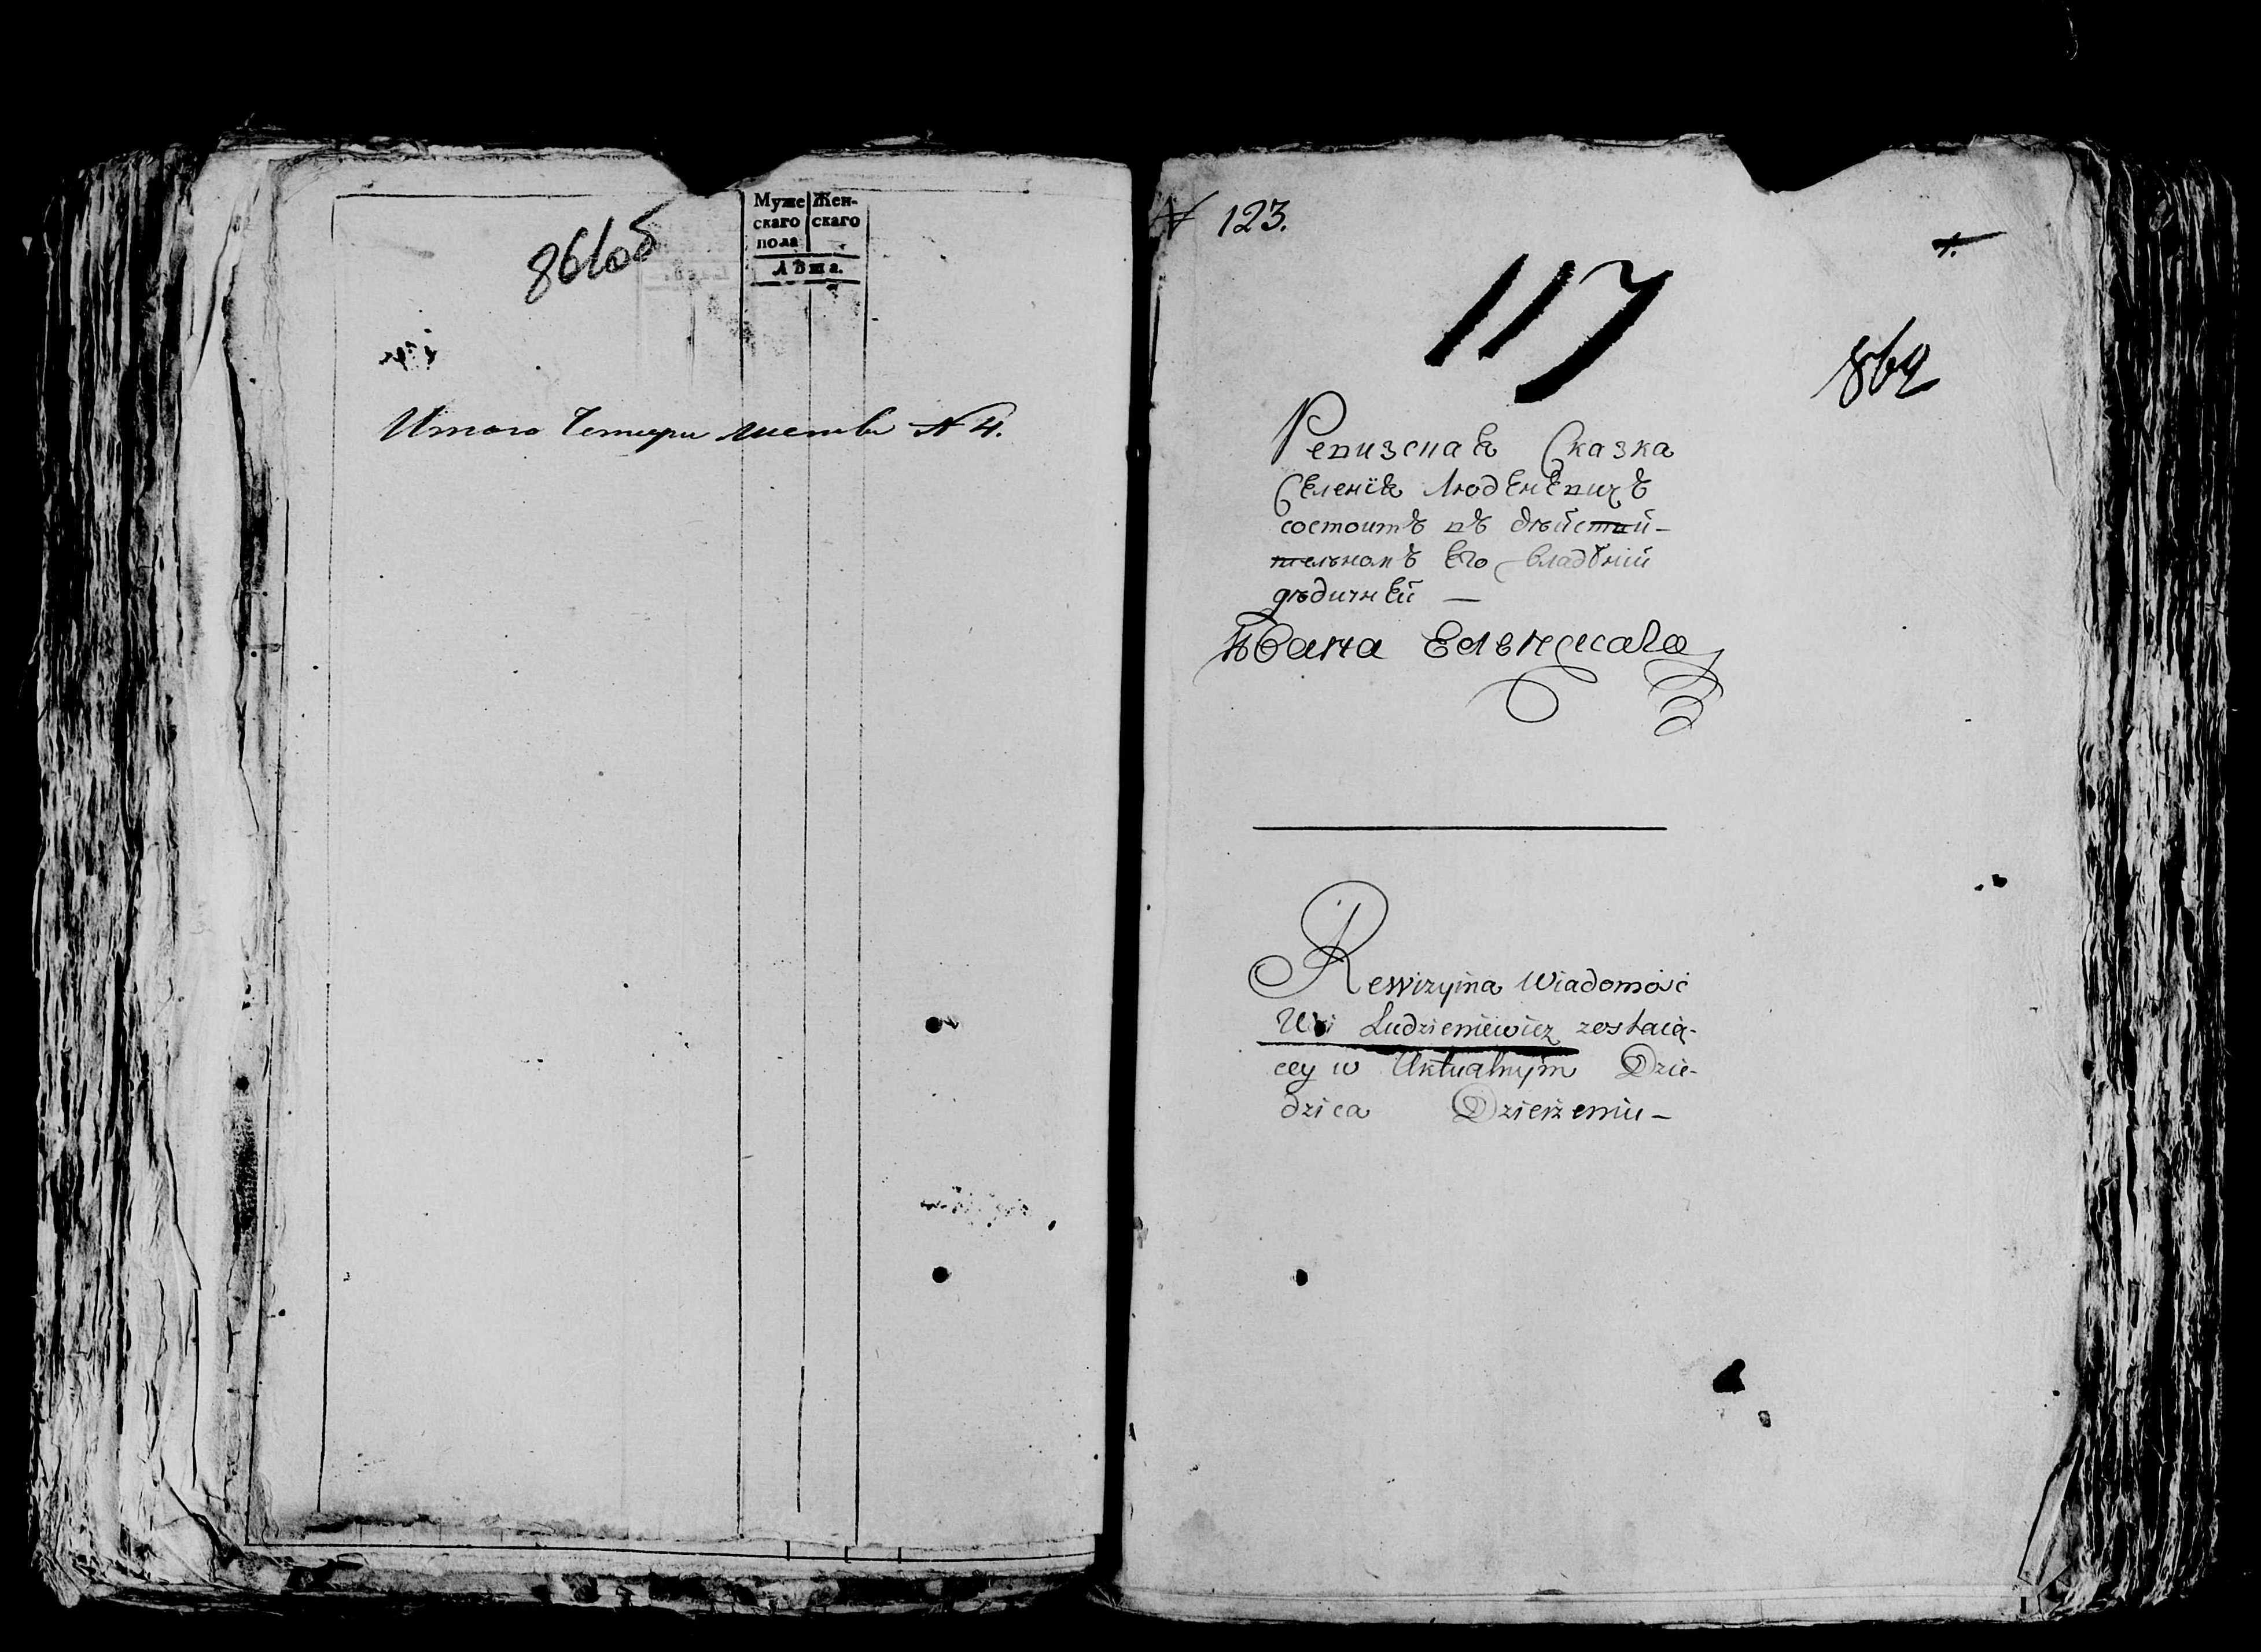 861об
Муже Жен-
скаго скаго
пола
Лѣта.
Итого Четыри листы № 4.
№ 123.
1.
117
862
Ревизская Сказка
Селенія Людзеневичъ
состоитъ въ дѣйстви-
тельномъ его владѣніи
дѣдичней —
Ивана
Rewizyina Wiadomość
Wsi Ludzieniewicz zostaią-
cey w Aktualnym Dzie-
dzica Dzierżeniu –